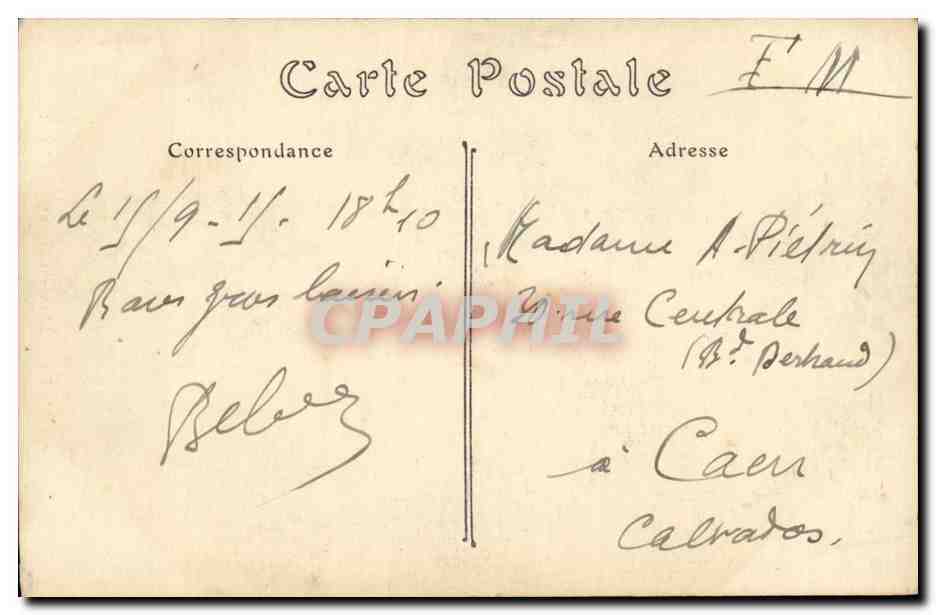 Carte Postale
F M
Correspondance
Le 15/9-15. 18h10
gros baisers.
Adresse
Madame A. Piétrin
rue Centrale
(Bd. Bertrand)
à Caen
Calvados.
CPAPHIL